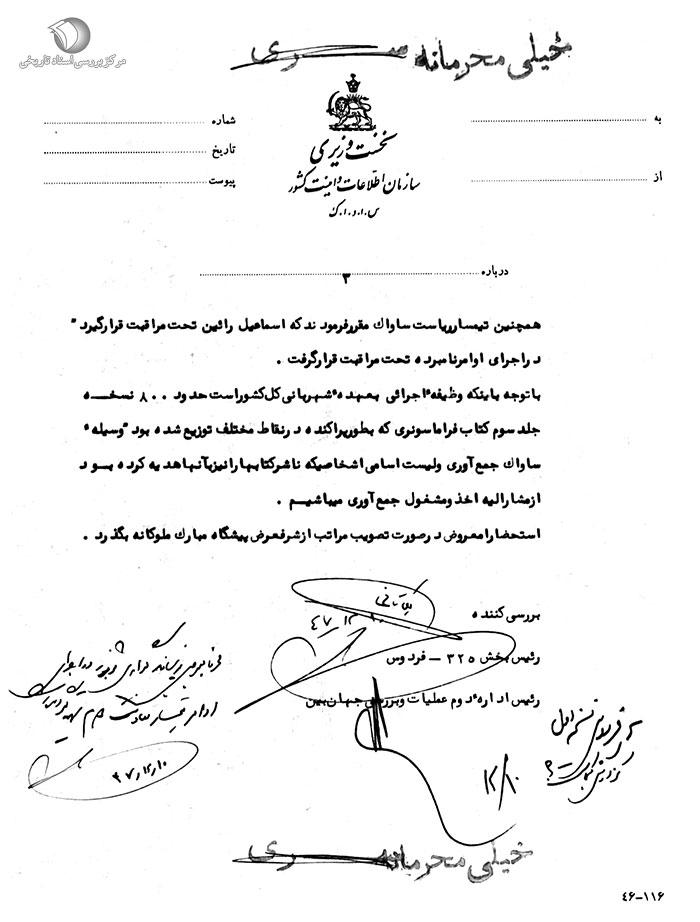 مرکز بررسی اسناد تاریخی
خیلی محرمانه سری
نخست وزیری
سازمان اطلاعات و امنیت کشور
س.ا.و.ا.ک
به
از
شماره
تاریخ
پیوست
درباره ۳
همچنین تیمسار ریاست ساواك مقرر فرمودند که اسماعیل رائین تحت مراقبت قرار گیرد"
در اجرای اوامر نامبرده تحت مراقبت قرار گرفت .
با توجه باینکه وظیفه اجرائی بعهده شهربانی کل کشور است حدود ۸۰۰ نسخه
جلد سوم کتاب فراماسونری که بطور پراکنده در نقاط مختلف توزیع شده بود "وسیله"
ساواك جمع آوری ولیست اسامی اشخاصیکه ناشر کتابها را نیز بآنها هدیه کرده بود
از مشارالیه اخذ ومشغول جمع آوری میباشیم .
استحضارا معروض در صورت تصویب مراتب از شرفعرض پیشگاه مبارك ملوکانه بگذرد .
بررسی کننده
۴۷/۱۲/
رئیس بخش ۳۲۵ - فردوس
رئیس اداره دوم عملیات وبررسی جهان بین
۱۲/۱۰
۴۷/۱۲/۱۰
خیلی محرمانه سری
۴۶-۱۱۶